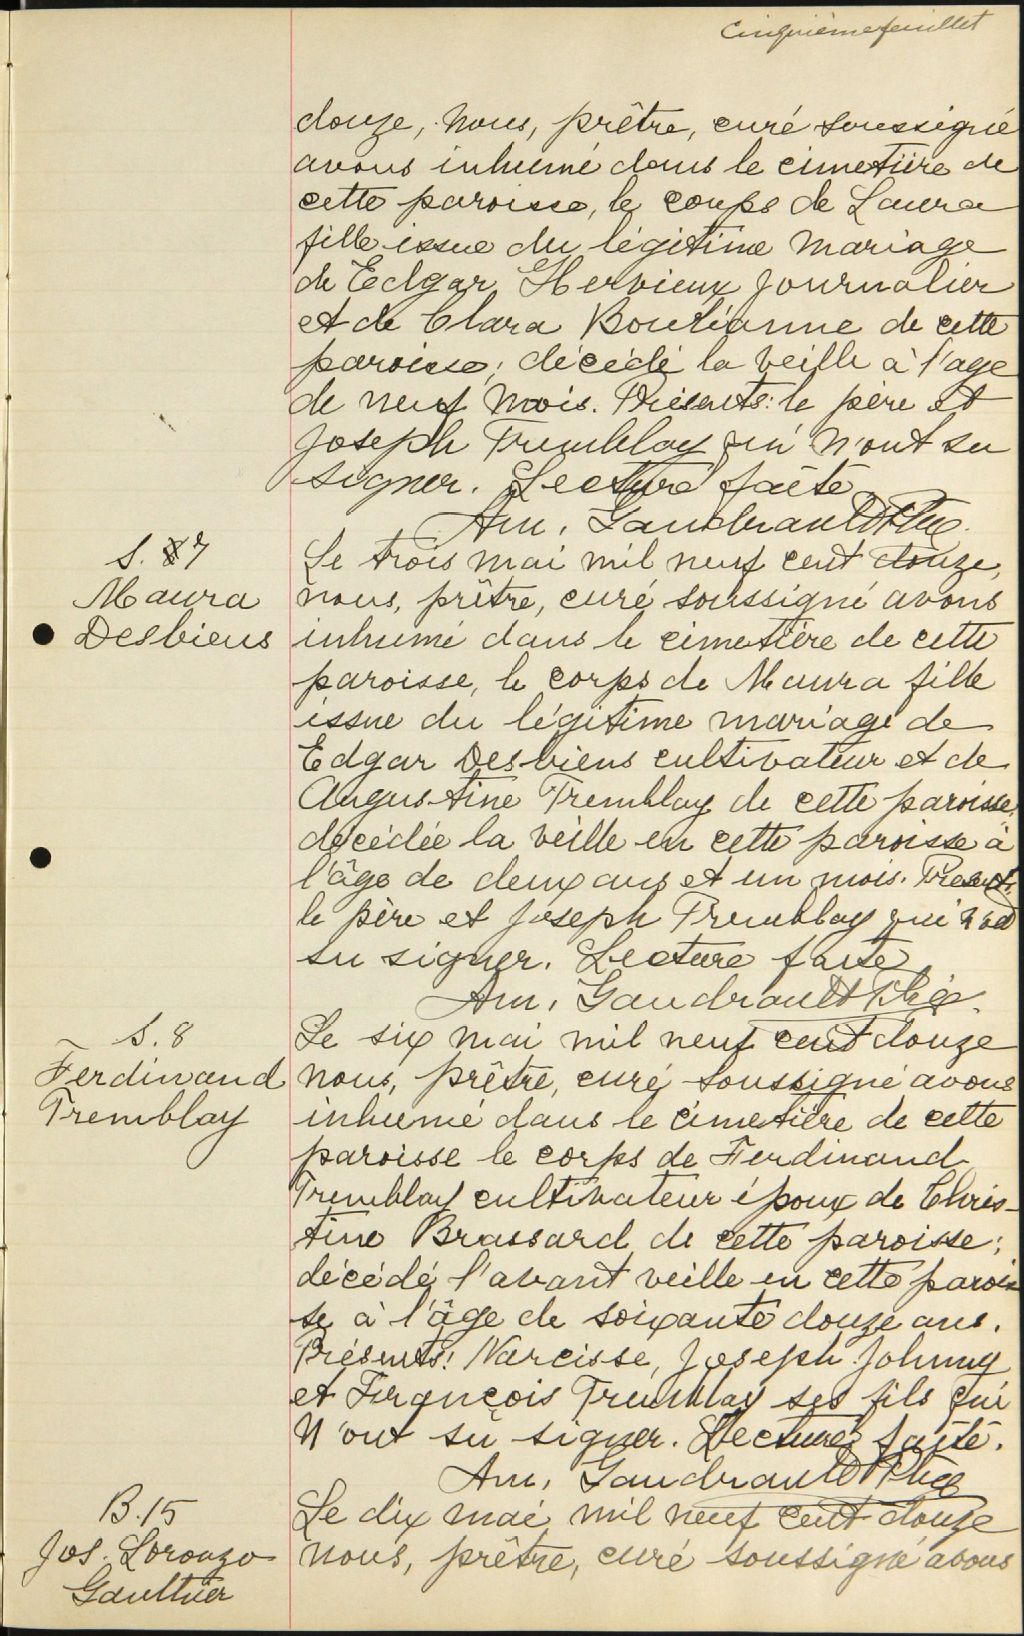 Cinquième feuillet
douze, nous, prêtre, curé soussigné
avons inhumé dans le cimetière de
cette paroisse, le corps de Laura
fille issue du légitime mariage
de Edgar Hervieux journalier
et de Clara Boulianne de cette
paroisse; décédé la veille à l'age
de neuf mois. Présents: le père et
Joseph Tremblay qui n'ont su
signer. Lecture faite
Am. Gaudreault Ptre
S. 7
Maura
Desbiens
Le trois mai mil neuf cent douze,
nous, prêtre, curé soussigné avons
inhumé dans le cimetière de cette
paroisse, le corps de Maura fille
issue du légitime mariage de
Edgar Desbiens cultivateur et de
Augustine Tremblay de cette paroisse,
décédée la veille en cette paroisse à
l'âge de deux ans et un mois. Présents,
le père et Joseph Tremblay qui n'ont
su signer. Lecture faite
Am. Gaudreault Ptre
S. 8
Ferdinand
Tremblay
Le six mai mil neuf cent douze
nous, prêtre, curé soussigné avons
inhumé dans le cimetière de cette
paroisse le corps de Ferdinand
Tremblay cultivateur époux de Chris-
tine Brassard de cette paroisse;
décédé l'avant veille en cette parois
se à l'âge de soixante douze ans.
Présents: Narcisse, Joseph Johnny
et François Tremblay ses fils qui
n'ont su signer. Lecture faite.
Am. Gaudreault Ptre
B. 15
Jos. Loronzo
Gaulthier
Le dix mai mil neuf cent douze
nous, prêtre, curé soussigné avons